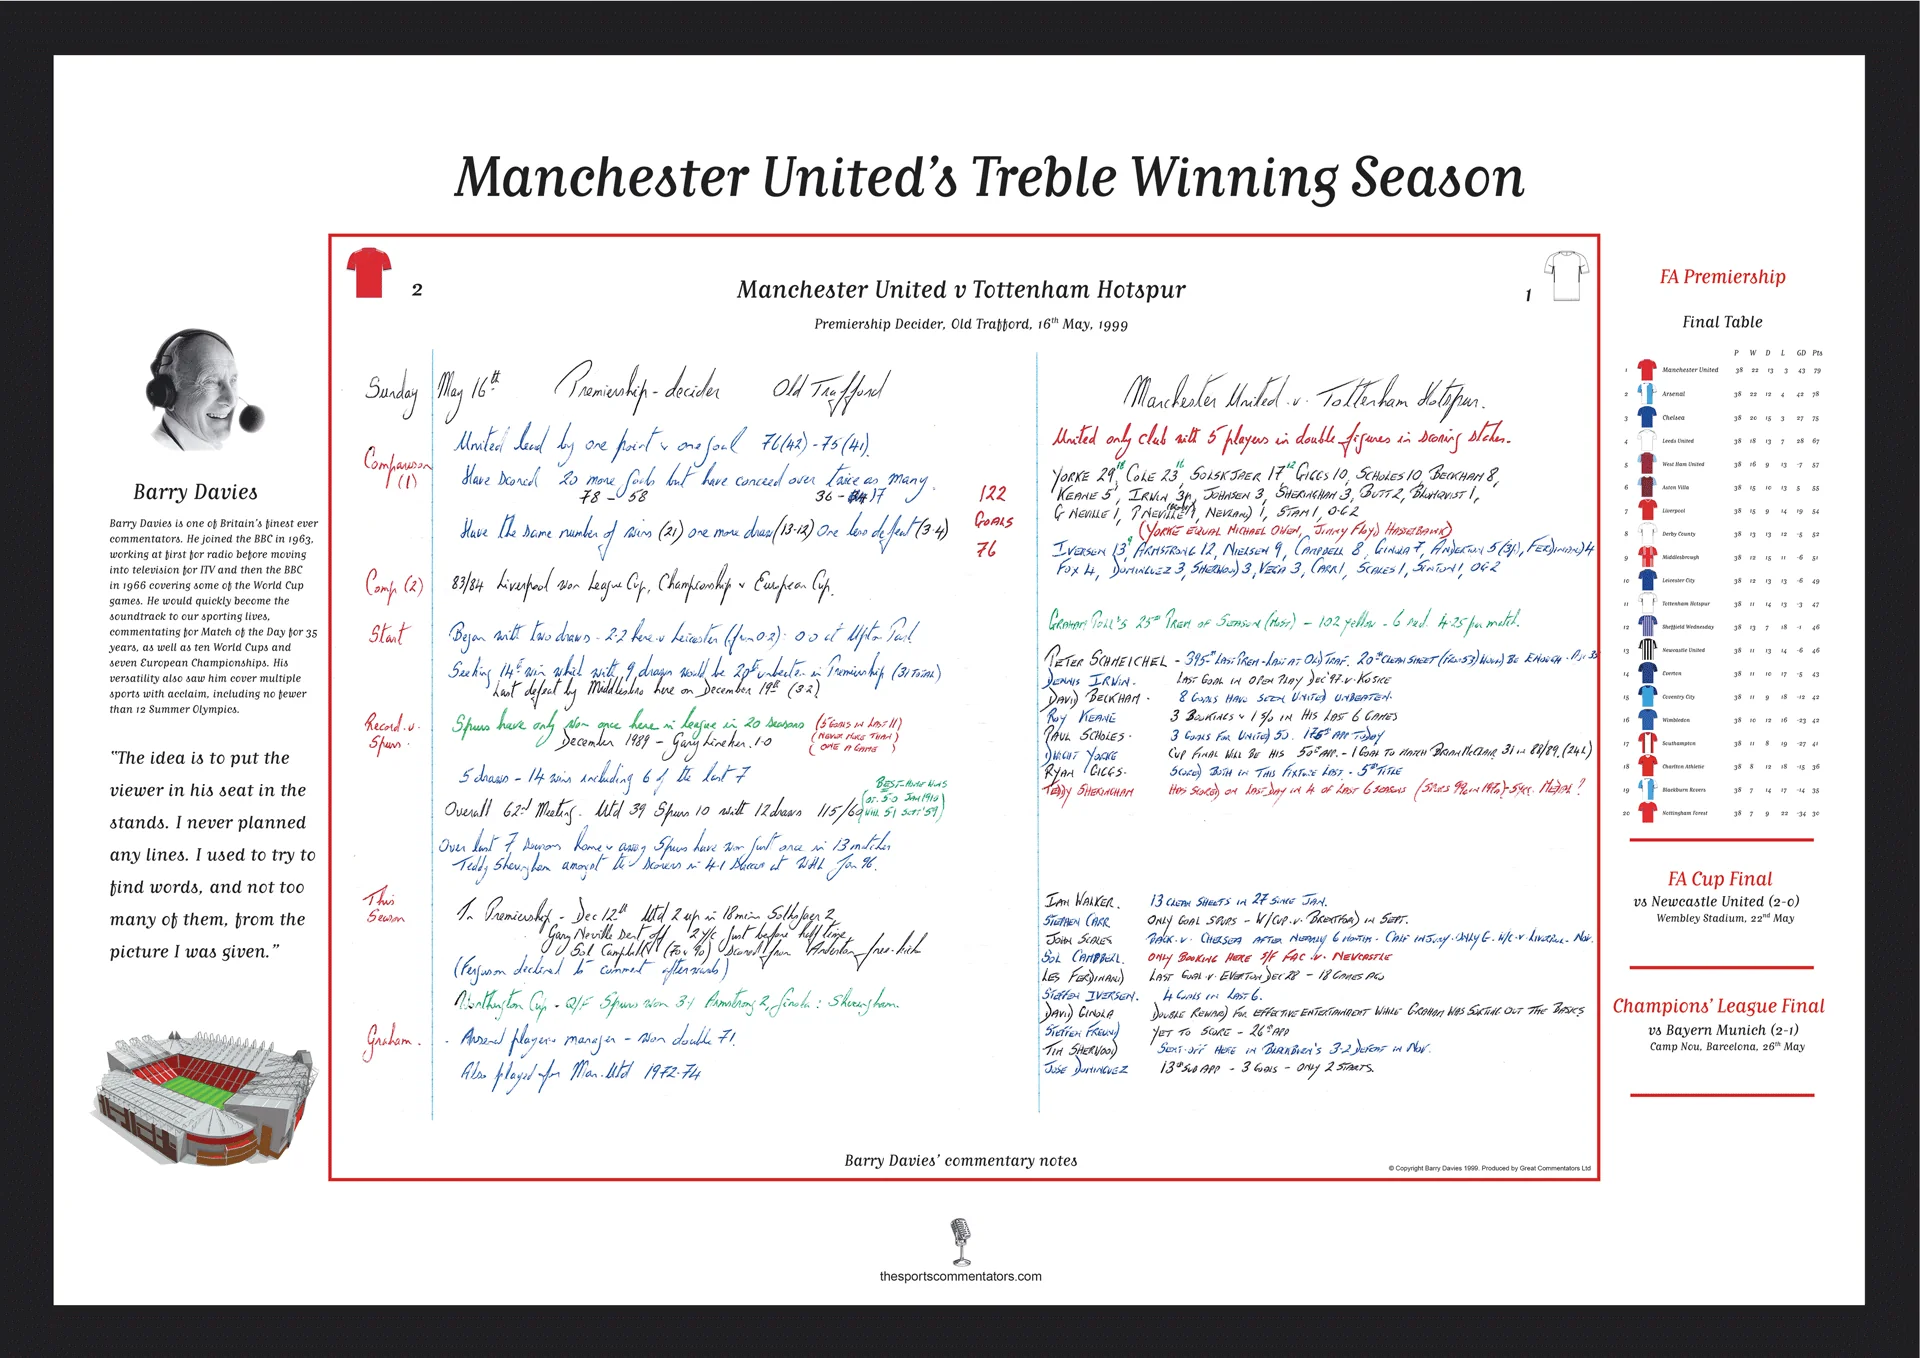 Manchester United's Treble Winning Season
2
Manchester United v Tottenham Hotspur
1
Premiership Decider, Old Trafford, 16th May, 1999
Barry Davies
Barry Davies is one of Britain's finest ever
commentators. He joined the BBC in 1963,
working at first for radio before moving
into television for ITV and then the BBC
in 1966 covering some of the World Cup
games. He would quickly become the
soundtrack to our sporting lives,
commentating for Match of the Day for 35
years, as well as ten World Cups and
seven European Championships. His
versatility also saw him cover multiple
sports with acclaim, including no fewer
than 12 Summer Olympics.
"The idea is to put the
viewer in his seat in the
stands. I never planned
any lines. I used to try to
find words, and not too
many of them, from the
picture I was given."
Sunday May 16th Premiership - decider Old Trafford
Comparison (1)
United lead by one point & one goal 76(42) - 75(41).
Have scored 20 more goals but have conceded over twice as many.
78 - 58 36 - 17
Have the same number of wins (21) one more draw (13-12) One less defeat (3-4)
122
GOALS
76
Comp (2) 83/84 Liverpool won League Cup, Championship & European Cup.
Start Began with two draws - 2-2 here v Leicester (from 0-2) - 0-0 at Upton Park
Seeking 14th win which with 9 draws would be 20th unbeaten in Premiership (31 TOTAL)
Last defeat by Middlesbro here on December 19th (3-2)
Record v. Spurs. Spurs have only won once here in league in 20 seasons
December 1989 - Gary Lineker. 1-0
(5 GOALS IN LAST 11)
(NEVER MORE THAN)
(ONE A GAME)
5 draws - 14 wins including 6 of the last 7
BEST - HOME WINS
Overall 62nd Meeting. Utd 39 Spurs 10 with 12 draws 115/60
OT. 5-0 JAN 1910
5-1 SEPT '59
Over last 7 seasons home & away Spurs have won just once in 13 matches
Teddy Sheringham amongst the scorers in 4-1 success at WHL Jan 96.
This Season In Premiership - Dec 12th Utd 2 up in 18 mins Solskjaer 2
Gary Neville sent off 2 y/c just before half time
Sol Campbell (70 & 90) scored from Anderton free-kick
(Ferguson declined to comment afterwards)
Worthington Cup - Q/F Spurs won 3-1 Armstrong 2, Ginola : Sheringham.
Graham. - Arsenal player & manager - won double 71.
Also played for Man. Utd 1972-74
Manchester United . v . Tottenham Hotspur.
United only club with 5 players in double figures in scoring stakes.
YORKE 29 18, COLE 23 16, SOLSKJAER 17 12 GIGGS 10, SCHOLES 10, BECKHAM 8,
KEANE 5, IRWIN 3p, JOHNSEN 3, SHERINGHAM 3, BUTT 2, BLOMQVIST 1,
G NEVILLE 1, P NEVILLE 1, NEVLAND 1, STAM 1, OG 2
(YORKE EQUAL MICHAEL OWEN, JIMMY FLOYD HASSELBAINK)
IVERSEN 13 9, ARMSTRONG 12, NIELSEN 9, CAMPBELL 8, GINOLA 7, ANDERTON 5 (3p), FERDINAND 4
FOX 4, DOMINGUEZ 3, SHERWOOD 3, VEGA 3, CARR 1, SCALES 1, SINTON 1, OG 2
GRAHAM POLL'S 25TH PREM OF SEASON (MOST) - 102 yellow - 6 red. 4.25 per match.
PETER SCHMEICHEL - 395TH LAST PREM - LAST AT OLD TRAF. 20TH CLEAN SHEET WOULD BE ENOUGH
DENNIS IRWIN. LAST GOAL IN OPEN PLAY DEC '97. v. ROSKE
DAVID BECKHAM. 8 GOALS HAVE SEEN UNITED UNBEATEN.
ROY KEANE 3 BOOKINGS & 1 S/O IN HIS LAST 6 GAMES
PAUL SCHOLES. 3 GOALS FOR UNITED 50. 175TH APP TODAY
DWIGHT YORKE CUP FINAL WILL BE HIS 50TH APP. - 1 GOAL TO MATCH BRIAN MCCLAIR 31 IN 88/89. (24L)
RYAN GIGGS. SCORED BOTH IN THIS FIXTURE LAST. - 5TH TITLE
TEDDY SHERINGHAM HAS SCORED ON LAST DAY IN 4 OF LAST 6 SEASONS MEDAL?
IAN WALKER. 13 CLEAN SHEETS IN 27 SINCE JAN.
STEPHEN CARR ONLY GOAL SPURS - W/CUP. v. BRENTFORD IN SEPT.
JOHN SCALES BACK. v. CHELSEA AFTER NEARLY 6 MONTHS - CALF INJURY. ONLY G. W/C. v. LIVERPOOL. NOV.
SOL CAMPBELL. ONLY BOOKING HERE S/F FAC. v. NEWCASTLE
LES FERDINAND LAST GOAL. v. EVERTON DEC 28 - 18 GAMES AGO
STEFFEN IVERSEN. 4 GOALS IN LAST 6.
DAVID GINOLA DOUBLE REWARD FOR EFFECTIVE ENTERTAINMENT WHILE GRAHAM WAS SORTING OUT THE BASICS
STEFFEN FREUND YET TO SCORE - 26TH APP
TIM SHERWOOD SENT-OFF HERE IN BLACKBURN'S 3-2 DEFEAT IN NOV.
JOSE DOMINGUEZ 13TH SUB APP - 3 GOALS - ONLY 2 STARTS.
Barry Davies' commentary notes
© Copyright Barry Davies 1999. Produced by Great Commentators Ltd
FA Premiership
Final Table
P W D L GD Pts
1 Manchester United 38 22 13 3 43 79
2 Arsenal 38 22 12 4 42 78
3 Chelsea 38 20 15 3 27 75
4 Leeds United 38 18 13 7 28 67
5 West Ham United 38 16 9 13 -7 57
6 Aston Villa 38 15 10 13 5 55
7 Liverpool 38 15 9 14 19 54
8 Derby County 38 13 13 12 -5 52
9 Middlesbrough 38 12 15 11 -6 51
10 Leicester City 38 12 13 13 -6 49
11 Tottenham Hotspur 38 11 14 13 -3 47
12 Sheffield Wednesday 38 13 7 18 -1 46
13 Newcastle United 38 11 13 14 -6 46
14 Everton 38 11 10 17 -5 43
15 Coventry City 38 11 9 18 -12 42
16 Wimbledon 38 10 12 16 -23 42
17 Southampton 38 11 8 19 -27 41
18 Charlton Athletic 38 8 12 18 -15 36
19 Blackburn Rovers 38 7 14 17 -14 35
20 Nottingham Forest 38 7 9 22 -34 30
FA Cup Final
vs Newcastle United (2-0)
Wembley Stadium, 22nd May
Champions' League Final
vs Bayern Munich (2-1)
Camp Nou, Barcelona, 26th May
thesportscommentators.com